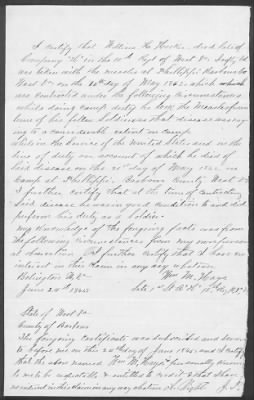 I certify that William H. Huskin died late of
Company "H" in the 10th Regt of West Va. Infty Vol
was taken with the measles at Phillippi Barbour Co
West Va. on the day of May 1862 which
was contracted under the following circumstances
while doing camp duty he took the measles from
some of his fellow soldiers as that disease was rag-
ing to a considerable extent in camp
while in the service of the United States and in the
line of duty on account of which he died of
said disease on the day of May 1862 in
camp at Phillippi Barbour County West Va
I further certify that at the time of contracting
said disease he was in good condition to and did
perform his duty as a soldier
my knowledge of the forgoing facts was from
the following circumstances from my own person
al observation I further certify that I have no
interest in this claim in any way whatever
Belington W. Va Wm M. Hays
June 24th Late 1st Lt. Co "H"
State of West Va
County of Barbour
The forgoing certificate was subscribed and sworn
to before me on the 24th day of June and I certify
that the above named Wm M. Hays personally known
to me to be reputable & entitled to credit & that I have
no interest in this claim in any way whatever